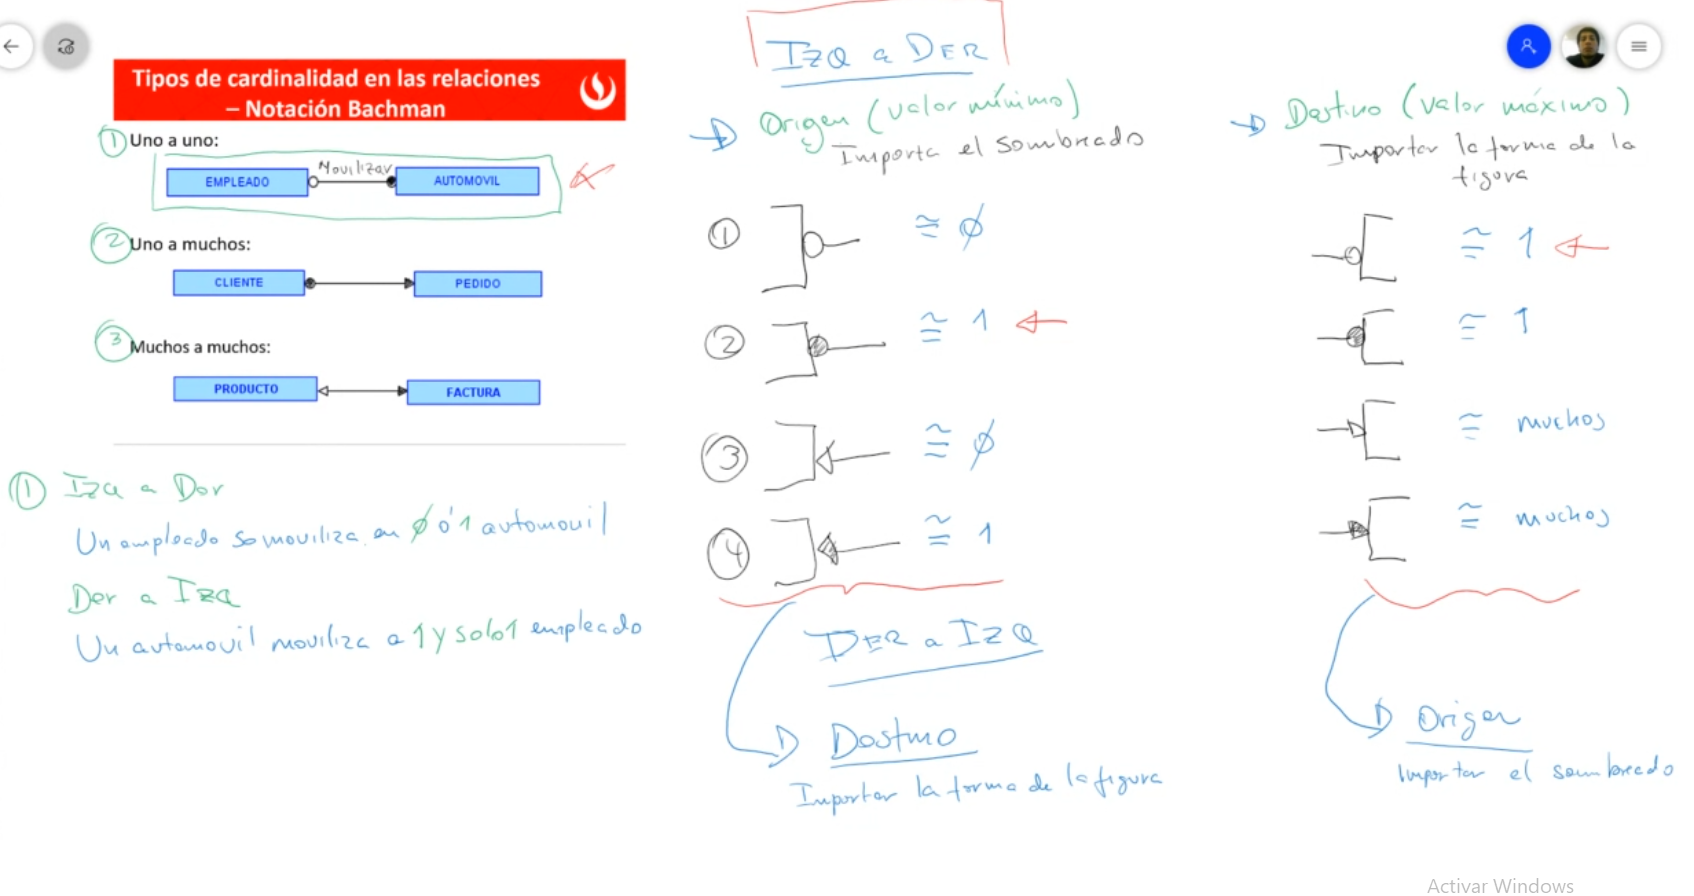 Tipos de cardinalidad en las relaciones
– Notación Bachman
1 Uno a uno:
Movilizar
EMPLEADO
AUTOMOVIL
2 Uno a muchos:
CLIENTE
PEDIDO
3 Muchos a muchos:
PRODUCTO
FACTURA
1 Izq a Der
Un empleado se moviliza en ø ó 1 automovil
Der a Izq
Un automovil moviliza a 1 y solo 1 empleado
IZQ a DER
Origen (valor mínimo)
Importa el sombreado
1 ≅ ø
2 ≅ 1
3 ≅ ø
4 ≅ 1
DER a IZQ
Destino
Importar la forma de la figura
Destino (valor máximo)
Importar la forma de la
figura
≅ 1
≅ 1
≅ muchos
≅ muchos
Origen
Importar el sombreado
Activar Windows